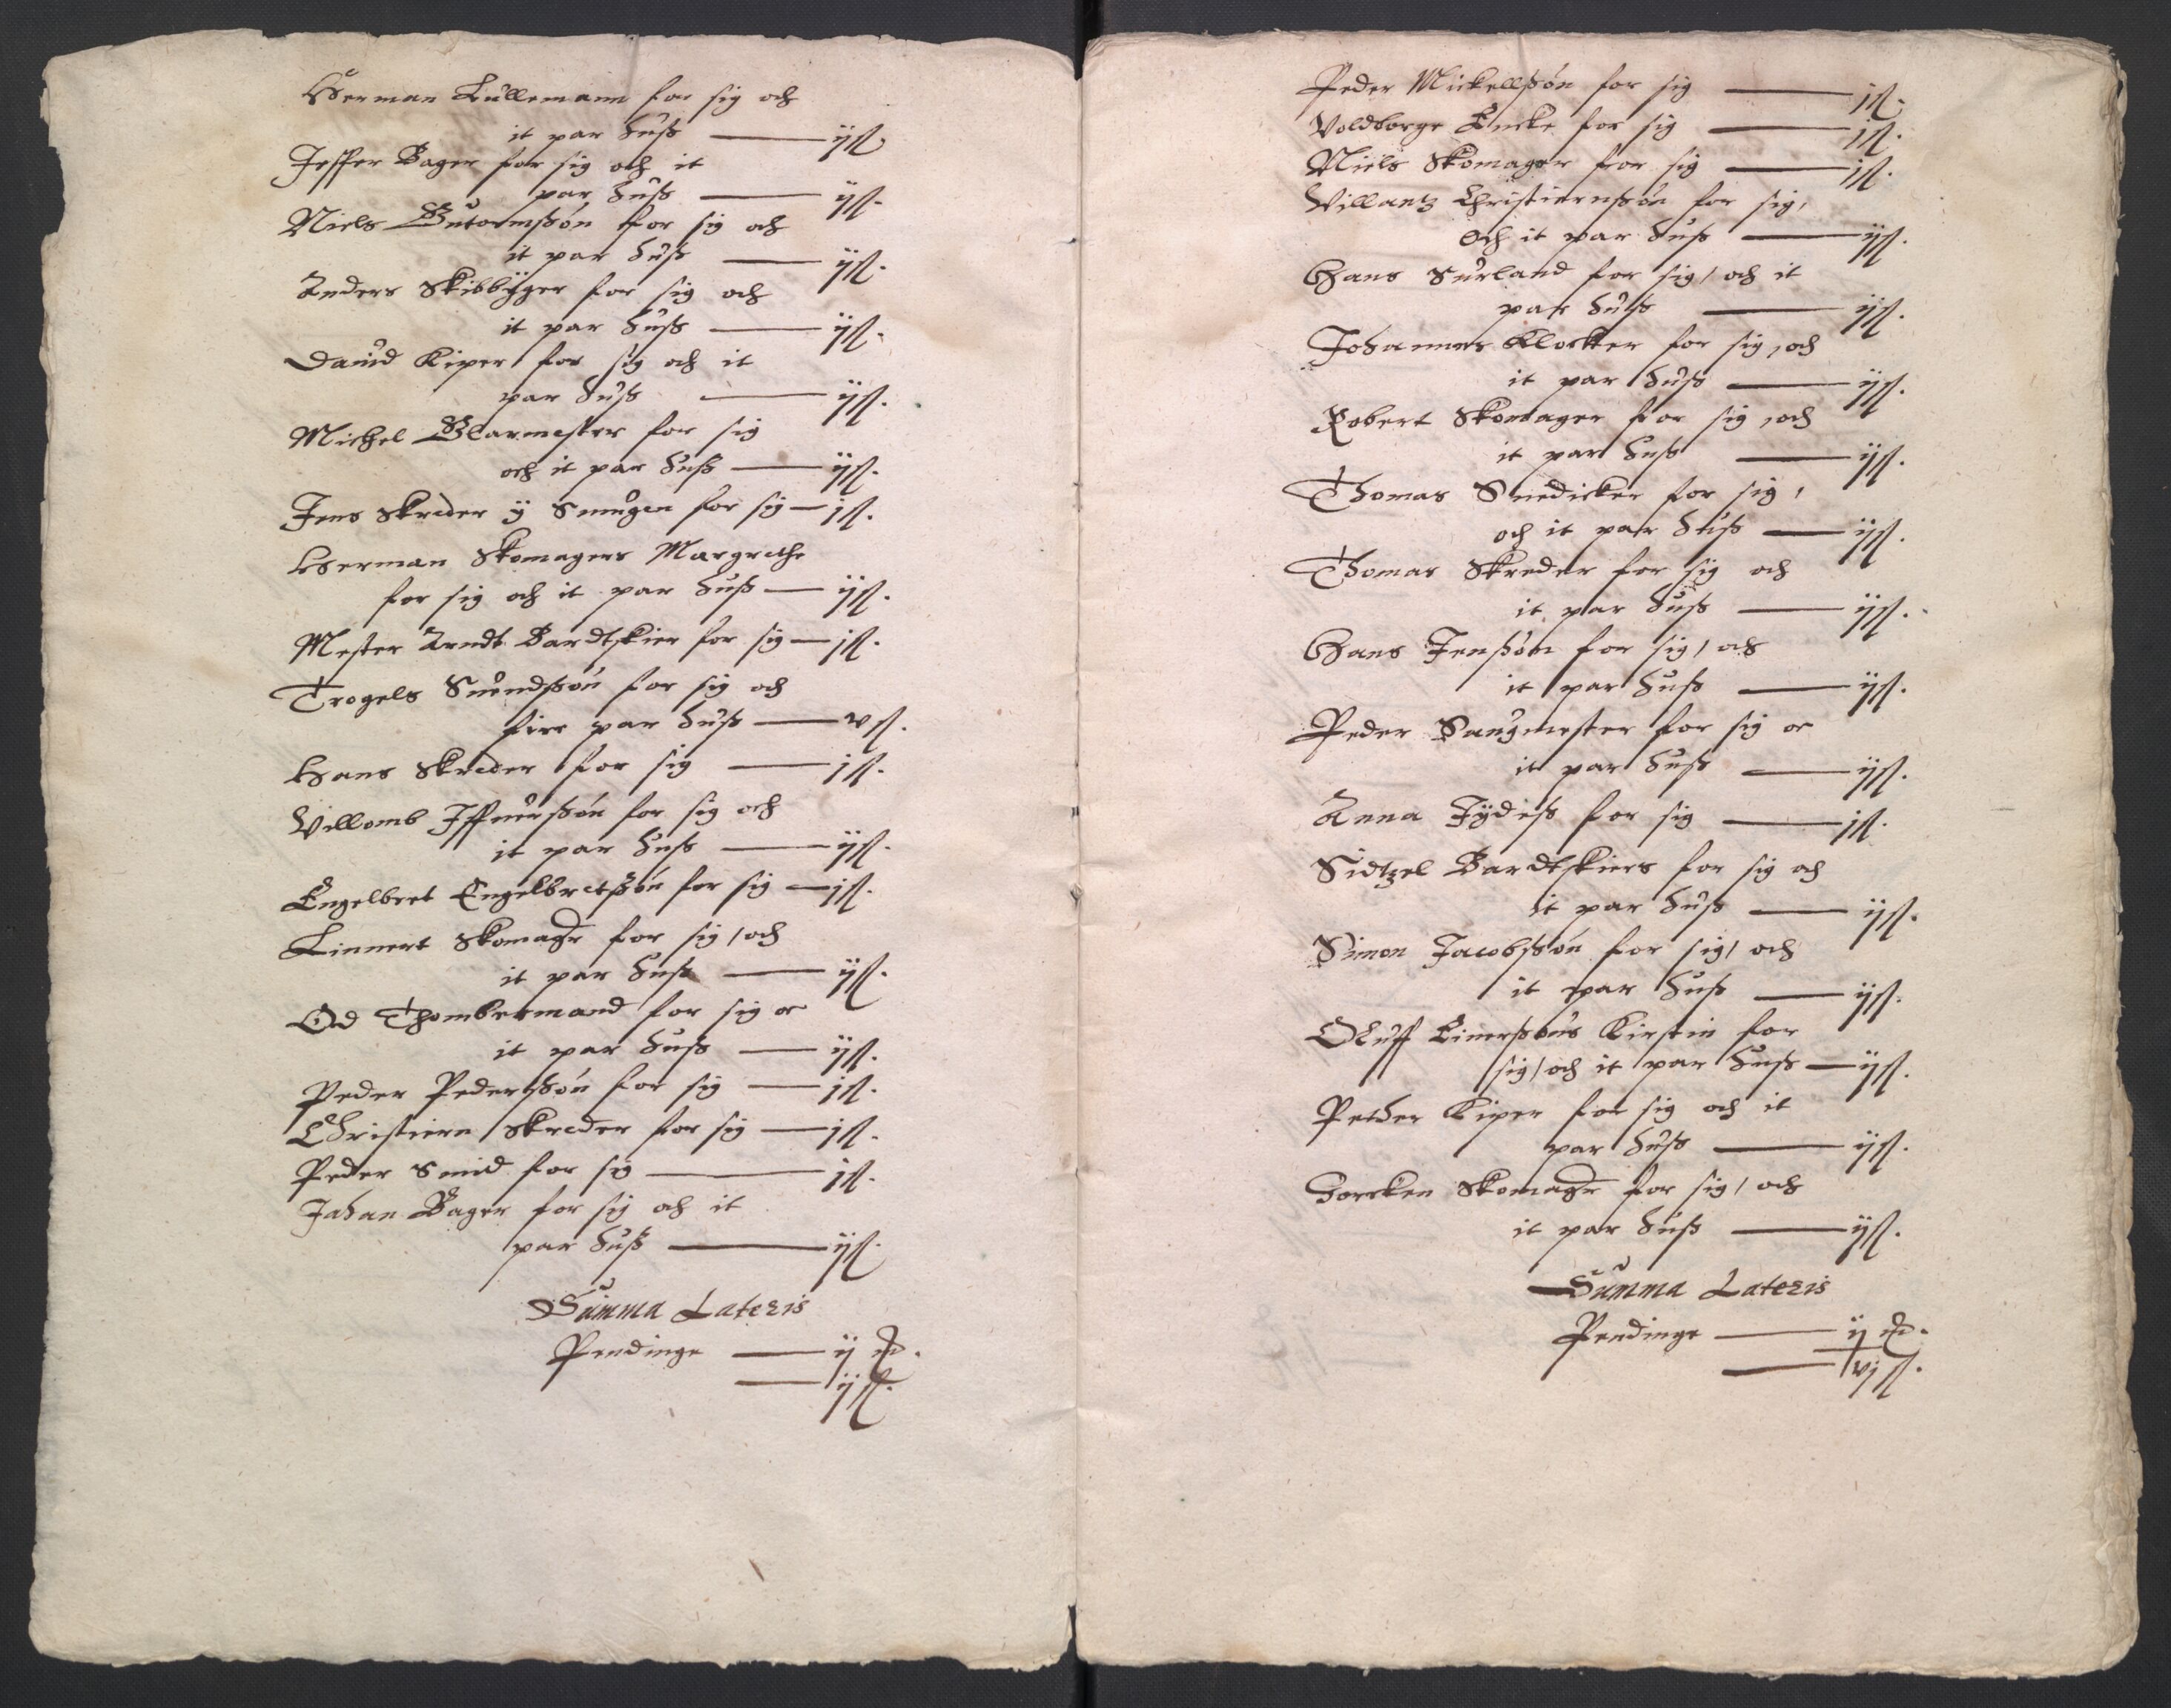 Herman Kullemann for sig och
it par huss — ij ſſ
Jesper Bager for sig och it
par huss — ij ſſ.
Niels Gutormssøn for sig och
it par huss — ij ſſ.
Anders Skibbÿger for sig och
it par huss — ij ſſ.
Dauid Kiper for sig och it
par huss — ij ſſ.
Michel Glarmester for sig
och it par huss — ij ſſ.
Jens Skreder ÿ Smugen for sig — j ſſ.
Herman Skomagers Margrethe
for sig och it par huss — ij ſſ.
Mester Arndt Bardtskier for sig — j ſſ.
Trogels Suendssøn for sig och
fire par huss — v ſſ.
Hans Skreder for sig — j ſſ.
Villomb Iffuerssøn for sig och
it par huss — ij ſſ.
Engelbret Engelbretssøn for sig — j ſſ.
Linnert Skomager for sig / och
it par huss — ij ſſ.
Od Thombermand for sig oc
it par huss — ij ſſ.
Peder Pederssøn for sig — j ſſ.
Christiern Skreder for sig — j ſſ.
Peder Smid for sig — j ſſ.
Johan Bager for sig och it
par huss — ij ſſ.
Summa Lateris
Pendinge — ij dr.
— ij ſſ.
Peder Mickellssøn for sig — j ſſ.
Voldborge Encke for sig — j ſſ.
Niels Skomager for sig — j ſſ.
Villantz Christiernssøn for sig,
och it par huss — ij ſſ.
Hans Surland for sig / och it
par huss — ij ſſ.
Johannes Klocker for sig, och
it par huss — ij ſſ.
Robert Skomager for sig, och
it par huss — ij ſſ.
Thomas Snedicker for sig,
och it par huss — ij ſſ.
Thomas Skreder for sig och
it par huss — ij ſſ.
Hans Jenssøn for sig / och
it par huss — ij ſſ.
Peder Sangmester for sig oc
it par huss — ij ſſ.
Anna Tydess for sig — j ſſ.
Sidtzel Bardtskiers for sig och
it par huss — ij ſſ.
Simon Jacobssøn for sig / och
it par huss — ij ſſ.
Oluff Einerssøns Kirstin for
sig / och it par huss — ij ſſ.
Petder Kiper for sig och it
par huss — ij ſſ.
Socken Skomager for sig / och
it par huss — ij ſſ.
Summa Lateris
Pendinge — ij dr.
— vj ſſ.